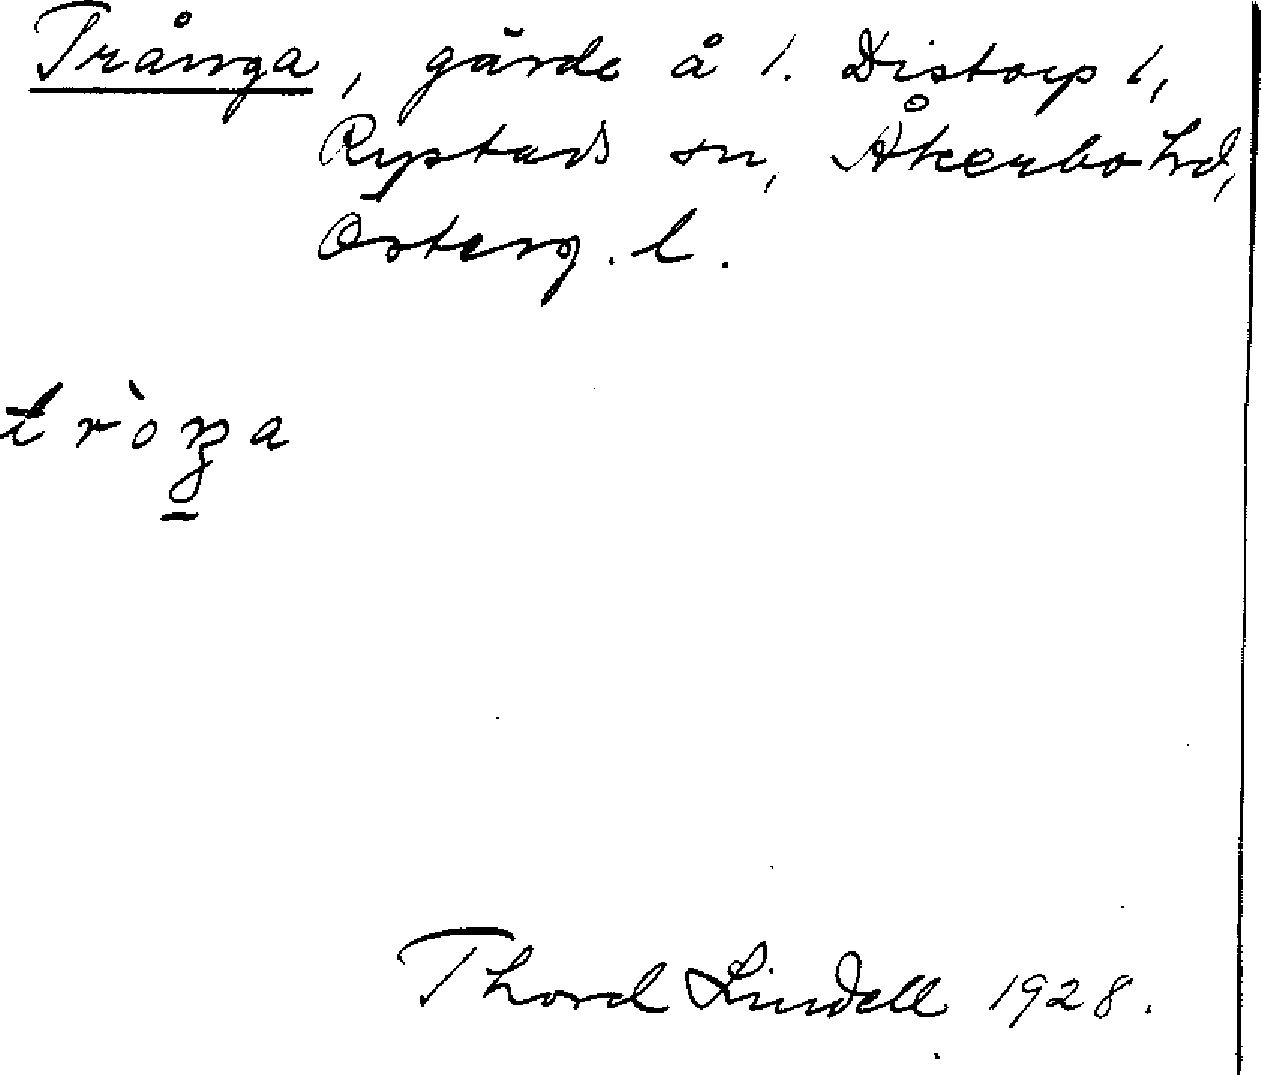 Trånga, gärde å 1. Distorp 1,
Rystads sn, Åkerbo hd,
Österg. l.
tròŋa
Thord Lindell 1928.